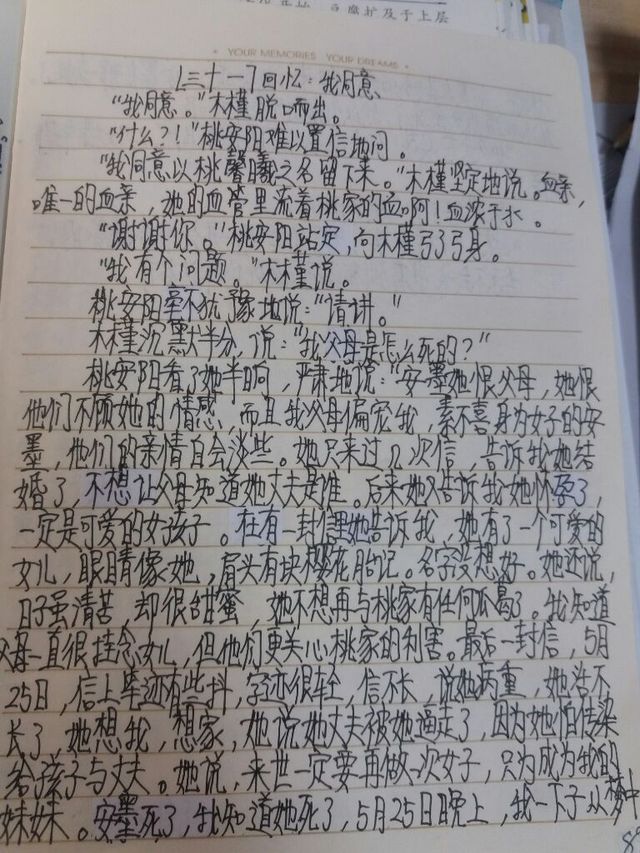 YOUR MEMORIES YOUR DREAMS
〔三十一〕回忆：我同意
“我同意。”木槿脱口而出。
“什么？！”桃安阳难以置信地问。
“我同意以桃馨曦之名留下来。”木槿坚定地说。血亲，
唯一的血亲，她的血管里流着桃家的血啊！血浓于水。
“谢谢你。”桃安阳站定，向木槿弓弓身。
“我有个问题。”木槿说。
桃安阳毫不犹豫地说：“请讲。”
木槿沉默半分，说：“我父母是怎么死的？”
桃安阳看了她半晌，严肃地说：“安墨她恨父母，她恨
他们不顾她的情感，而且我父母偏宠我，素不喜身为女子的安
墨，他们的亲情自会淡些。她只来过几次信，告诉我她结
婚了，不想让父母知道她丈夫是谁。后来她又告诉我她怀孕了，
一定是可爱的女孩子。在有一封信里她告诉我，她有了一个可爱的
女儿，眼睛像她，肩头有块樱花胎记。名字没想好。她还说，
日子虽清苦，却很甜蜜，她不想再与桃家有任何瓜葛了。我知道
父母一直很挂念女儿，但他们更关心桃家的利害。最后一封信，5月
25日，信上笔迹有些抖，字迹很轻，信不长，说她病重，她活不
长了，她想我，想家，她说她丈夫被她逼走了，因为她怕传染
给孩子与丈夫。她说，来世一定要再做一次女子，只为成为我的
妹妹。安墨死了，我知道她死了，5月25日晚上，我一下子从梦中